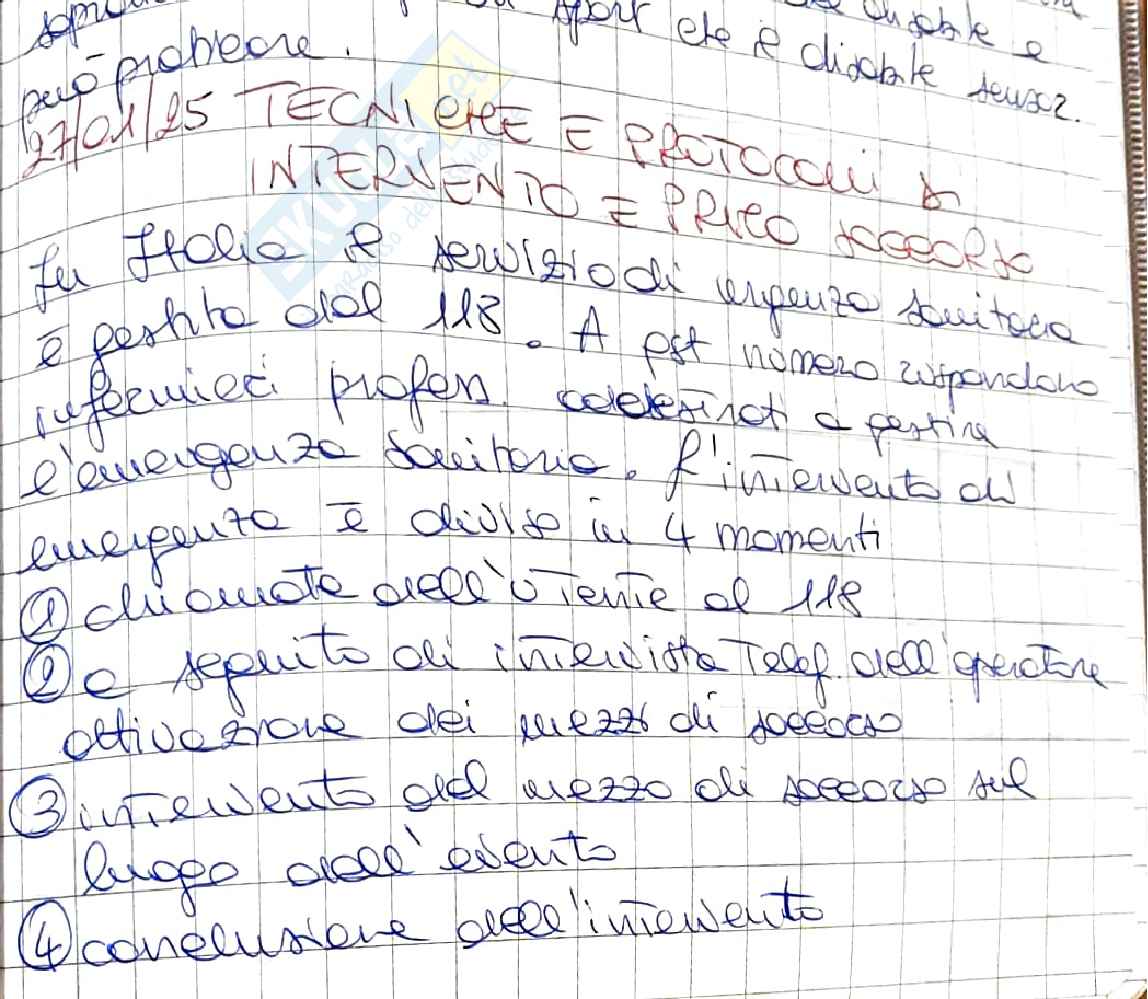 che è disabile e
può praticare. sport che è disabile sensoz.
27/01/25 TECNICHE E PROTOCOLLI DI
INTERVENTO = PRIMO SOCCORSO
In Italia il servizio di urgenza sanitaria
è gestito dal 118. A qst numero rispondono
infermieri profess. addestrati a gestire
l'emergenza sanitaria. L'intervento di
emergenza è diviso in 4 momenti
① chiamata dell'utente al 118
② a seguito di intervista telef. dell'operatore
attivazione dei mezzi di soccorso
③ intervento del mezzo di soccorso sul
luogo dell'evento
④ conclusione dell'intervento